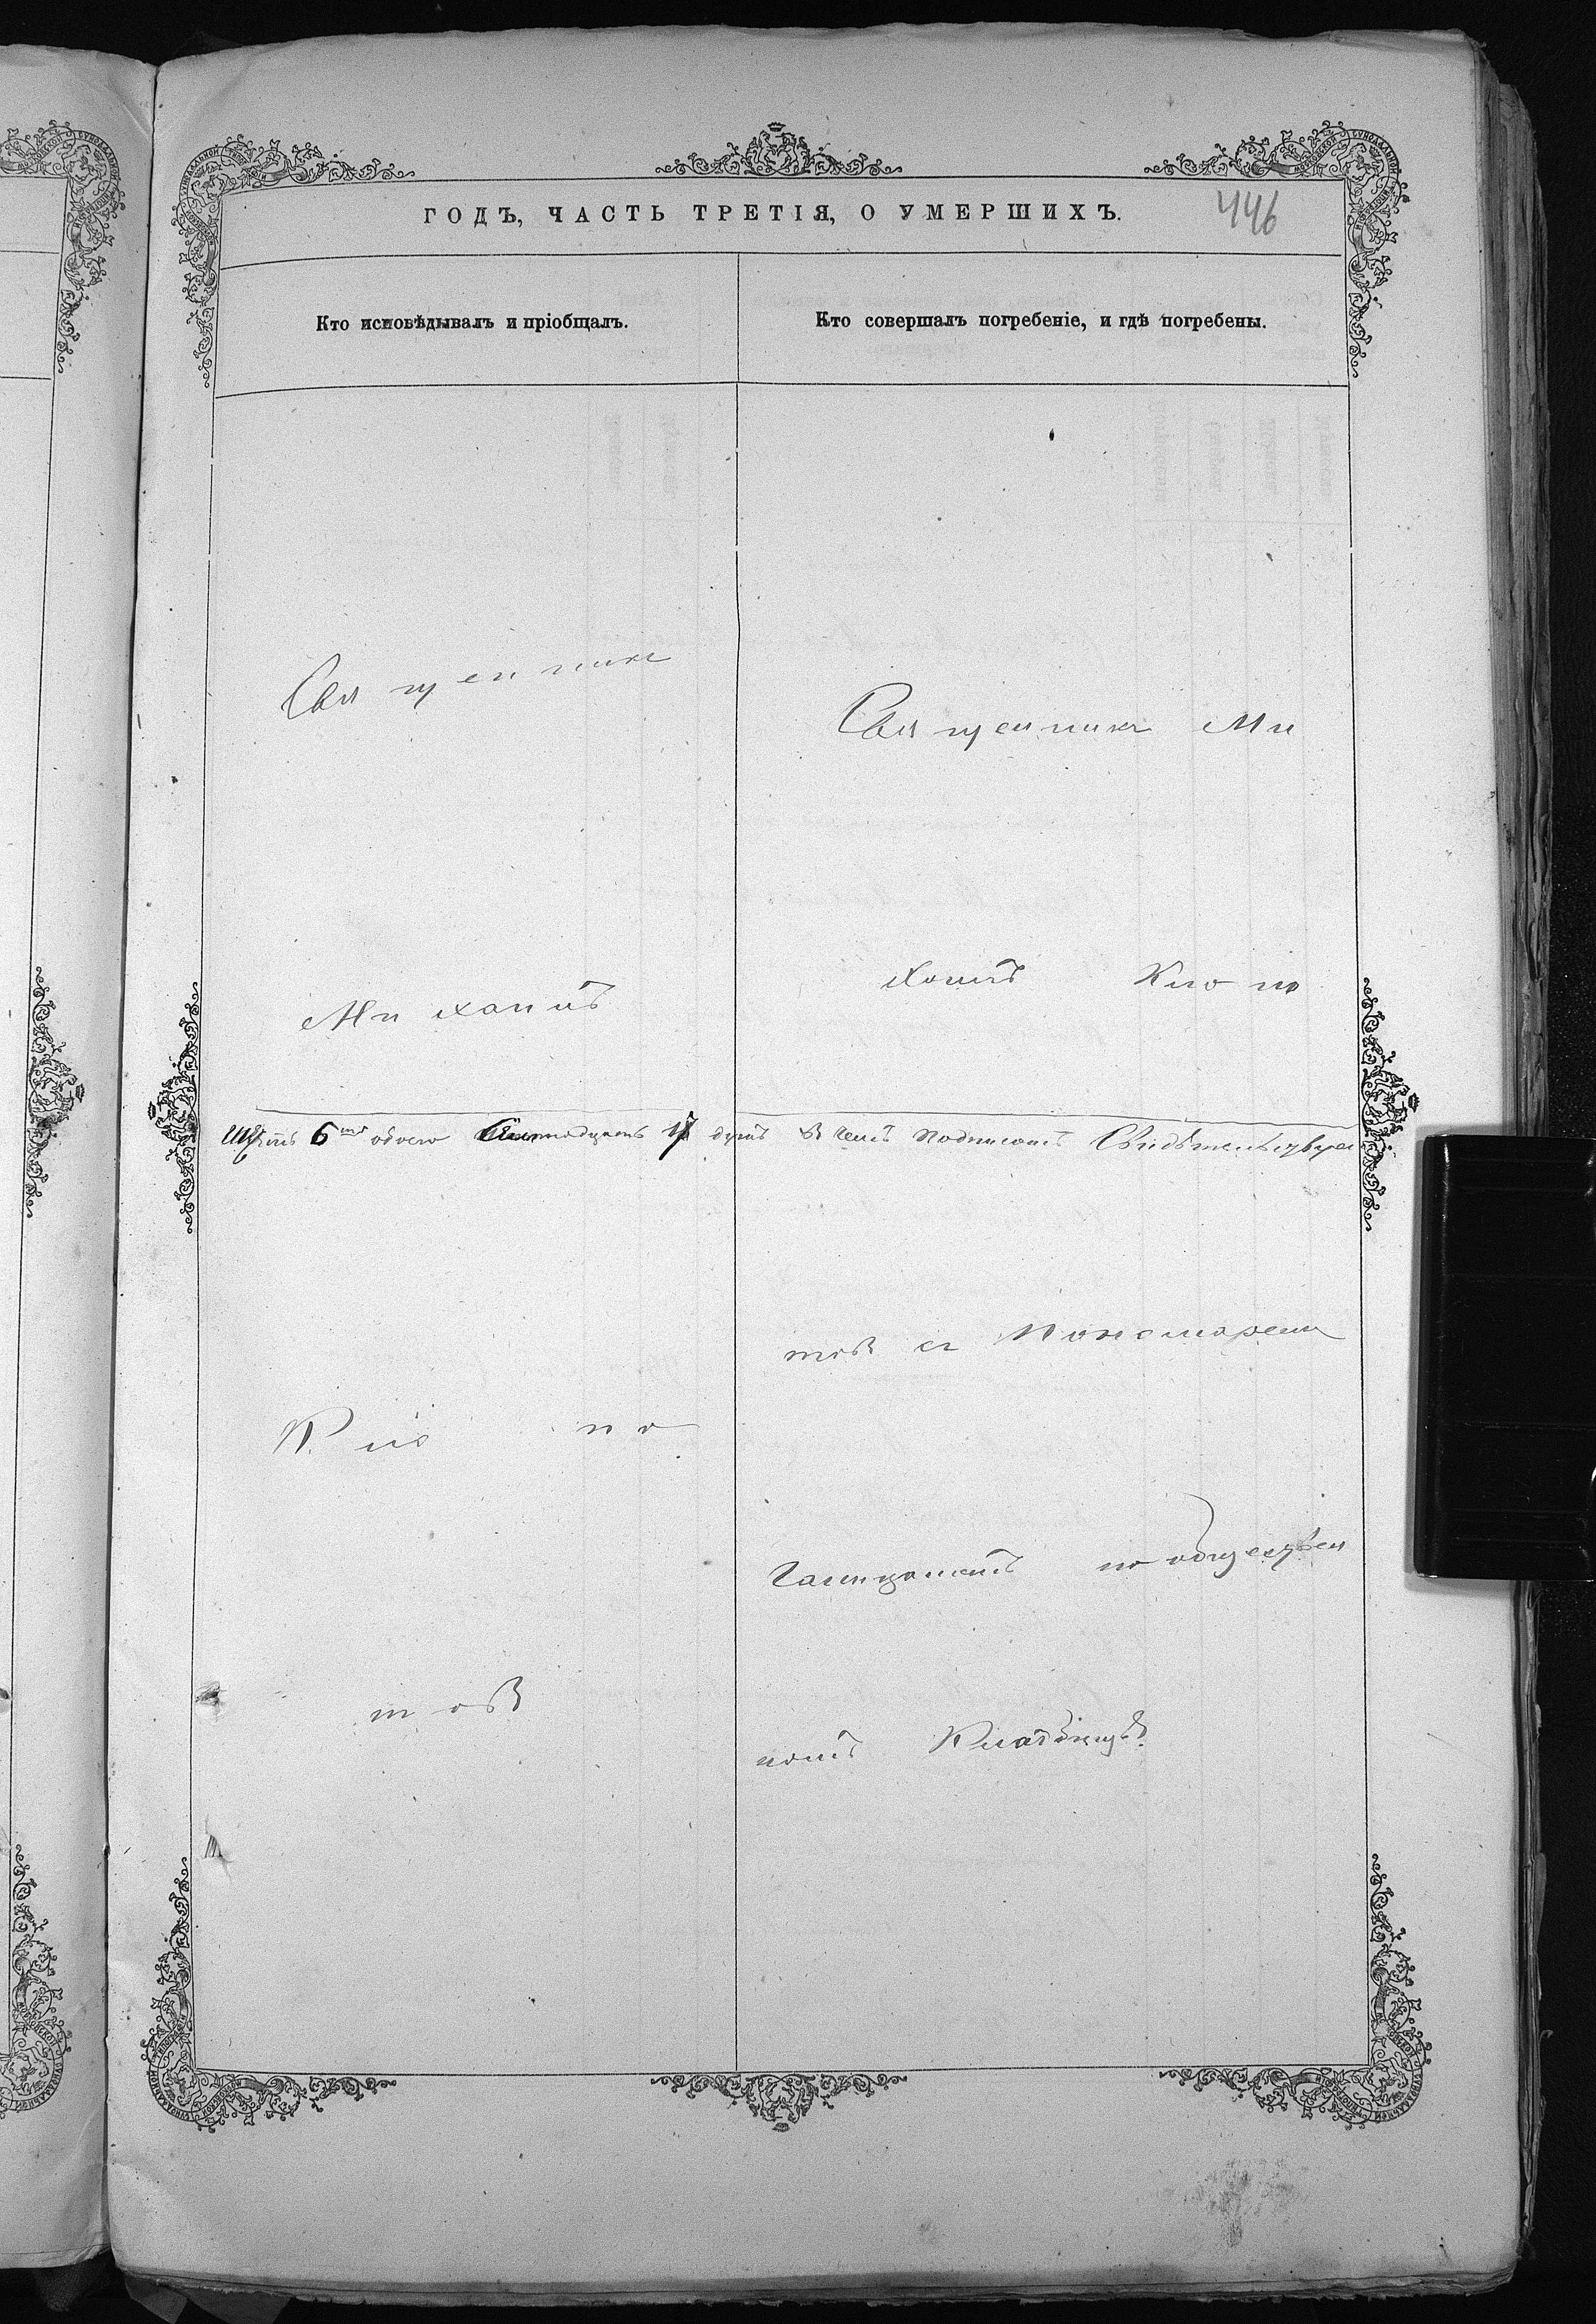 ГОДЪ, ЧАСТЬ ТРЕТІЯ, О УМЕРШИХЪ.
446
Кто исповѣдывалъ и пріобщалъ.
Кто совершалъ погребеніе, и гдѣ погребены.
Священникъ
Михаилъ
Клю по
товъ
Священникъ Ми
хаилъ Клю по
товъ съ Пономаремъ
на обществен
номъ Кладбищѣ.
6 обоего 17 душъ въ чемъ подписомъ Свидѣтельствуемъ